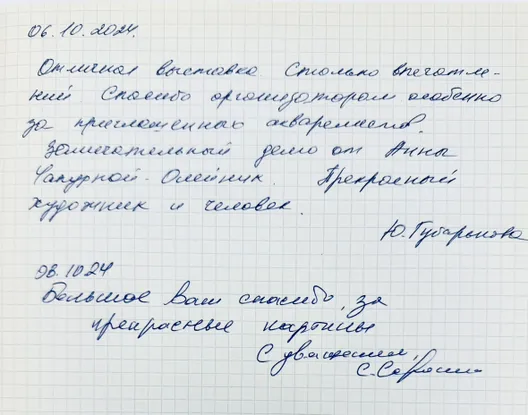 06.10.2024.
Отличная выставка Столько впечатле-
ний Спасибо организаторам особенно
за приглашенных акварелистов.
Замечательный демо от Анны
Чапурной-Олейник. Прекрасный
художник и человек.
Ю. Губарькова
08.10 24
Большое Вам спасибо, за
прекрасные картины
С уважением,
С.